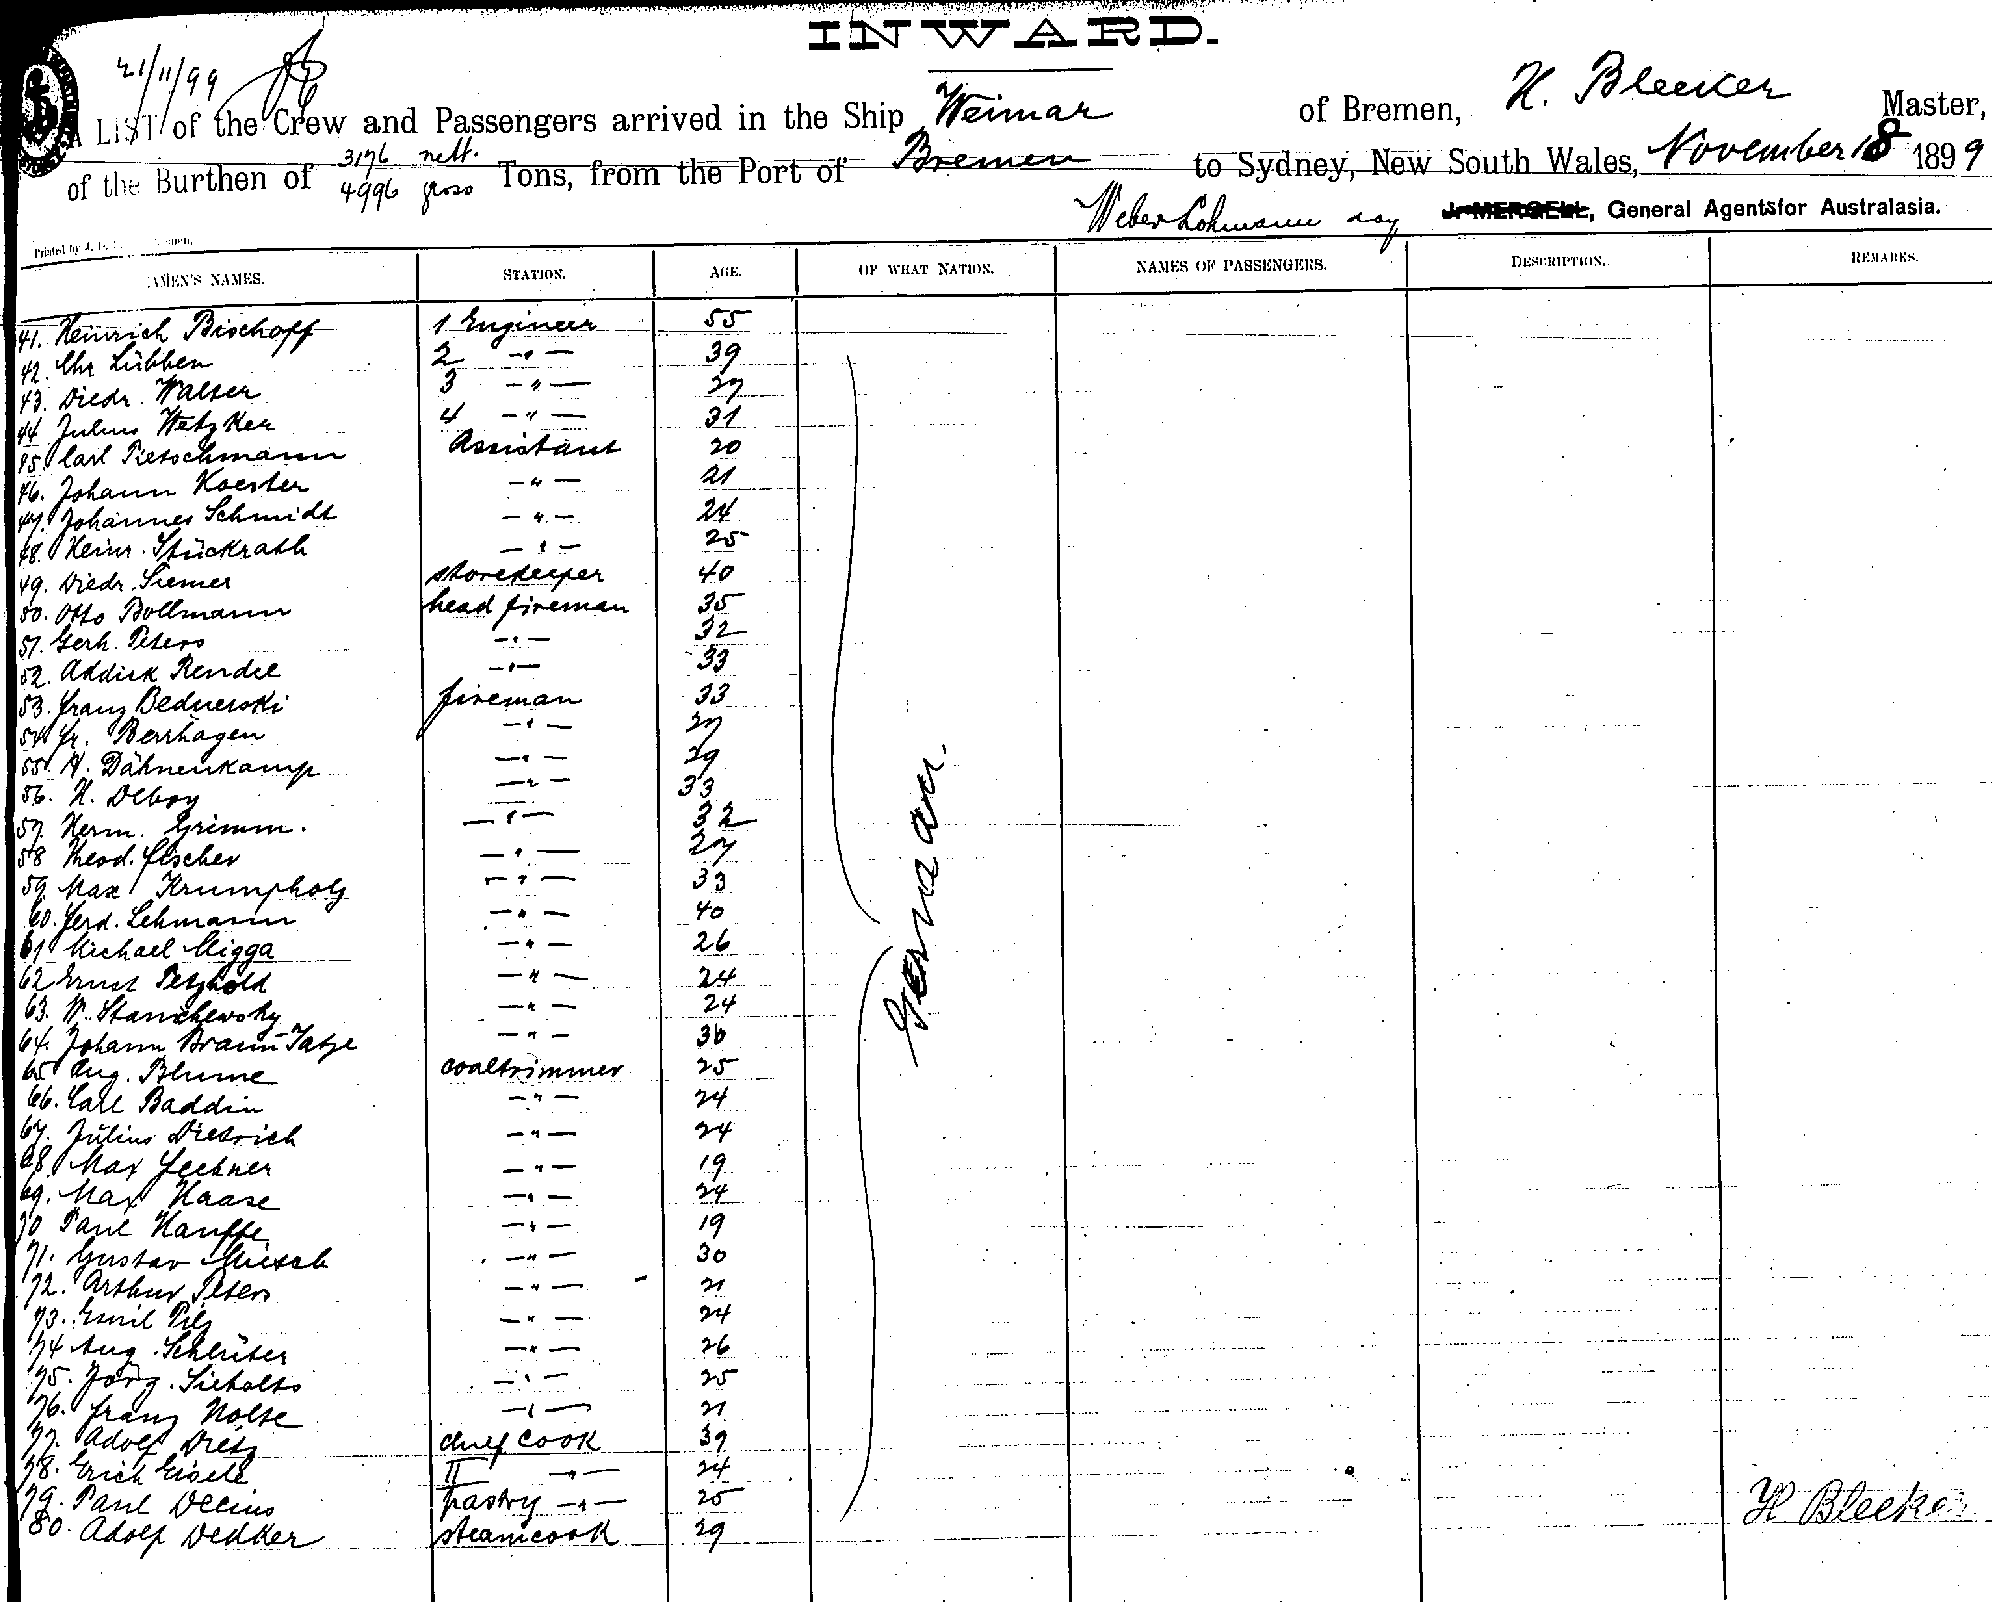 INWARD.
21/11/99
A LIST of the Crew and Passengers arrived in the Ship Weimar of Bremen, H. Bleeker Master,
of the Burthen of 3176 nett. 4996 gross Tons, from the Port of Bremen to Sydney, New South Wales, November 18 1899
Weber Lohmann J. MERGELL, General Agents for Australasia.
Printed by J.
AMEN'S NAMES. STATION. AGE. OF WHAT NATION. NAMES OF PASSENGERS. DESCRIPTION. REMARKS.
41. Heinrich Bischoff 1 Engineer 55
42. Chr Lübben 2 -"- 39
43. Diedr. Walter 3 -"- 27
44 Julius Wetzker 4 -"- 31
45. Carl Pietschmann Assistant 20
46. Johann Koester -"- 21
47. Johannes Schmidt -"- 24
48. Heinr. Stückrath -"- 25
49. Diedr. Siemer storekeeper 40
50. Otto Bollmann head fireman 35
51. Gerh. Peters -"- 32
52. Addick Rendel -"- 33
53. Franz Bednerski fireman 33
54 Fr. Berrhagen -"- 27
55. H. Dähnenkamp -"- 29
56. H. Deboy -"- 33
57. Herm. Grimm. -"- 32
58 Theod. Fischer -"- 27
59. Max Krumpholz -"- 33
60. Ferd. Lehmann -"- 40
61 Michael Migga -"- 26
62 Ernst Petzhold -"- 24
63. W. Stanichewsky -"- 24
64. Johann Braun-Tatje -"- 36
65 Aug. Blume coaltrimmer 25
66. Carl Baddin -"- 24
67. Julius Dietrich -"- 24
68. Max Fechner -"- 19
69. Max Haase -"- 24
70 Paul Hauffe -"- 19
71. Gustav Mietsch -"- 30
72. Arthur Peters -"- 21
73. Emil Pilz -"- 24
74 Aug. Schlüter -"- 26
75. Jörg. Sieholts -"- 25
76. Franz Nolte -"- 21
77. Adolf Dietz chief cook 39
78. Erich Eisele II -"- 24
79. Paul Delius pastry -"- 25
80. Adolf Dekker steamcook 29
German.
H Bleeker